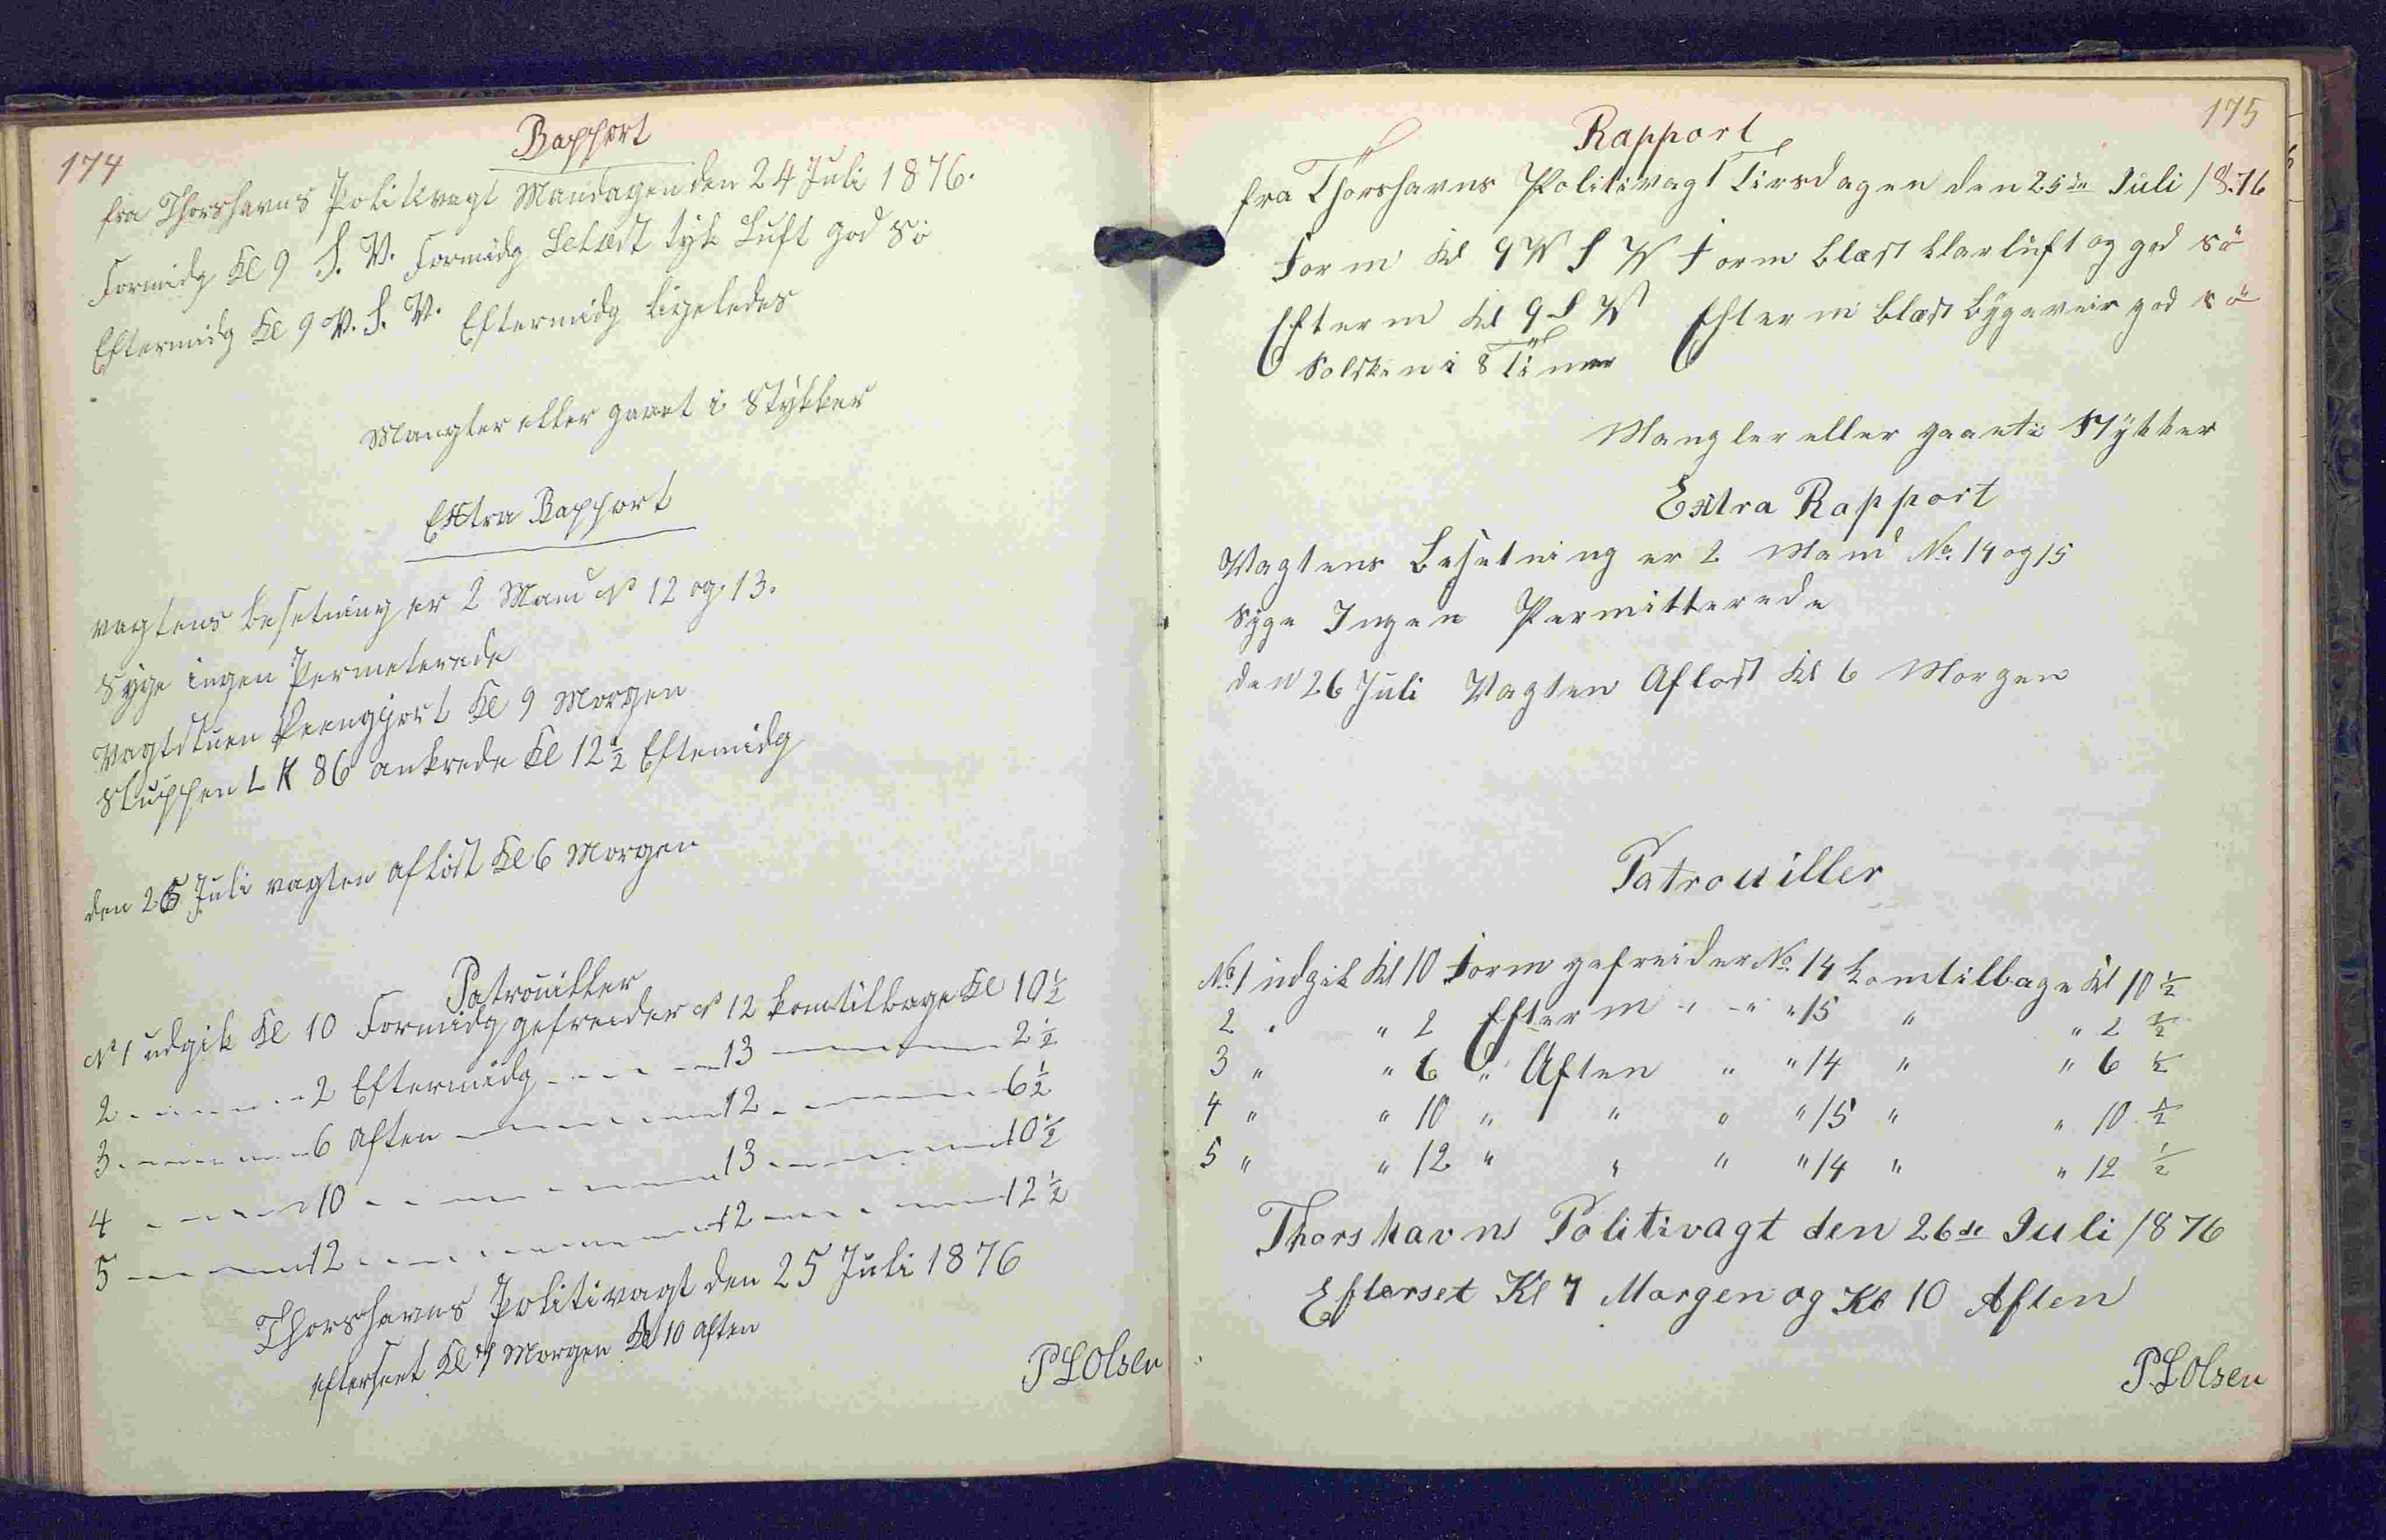 174
Rapport
fra Thorshavns Politivagt Mandagen den 24 Juli 1876.
Formidg Kl 9 S. V. Formidg Letlæst tyk Luft god Sö
Eftermidg Kl 9 V. S. V. Eftermidg ligeledes
Mangler eller gaaet i Stÿkker
Extra Rapport
vagtens besetning er 2 Mand No 12 og 13.
Syge ingen Permeterede
Vagtstuen Reengjort Kl 9 Morgen
Sluppen L K 86 ankrede Kl 12½ Eftemidg
den 25 Juli vagten aflöst Kl 6 Morgen
Patrouiller
No 1 udgik Kl 10 Formidg gefreider No 12 komtilbage Kl 10½
2 - - - - 2 Eftermidg - - - - 13 - - - - 2½
3 - - - - 6 Aften - - - - 12 - - - - 6½
4 - - - - 10 - - - - 13 - - - - 10½
5 - - - - 12 - - - - 12 - - - - 12½
Thorshavns Politivagt den 25 Juli 1876
efterseet Kl 7 Morgen Kl 10 Aften
P L Olsen
175
Rapport
fra Thorshavns Politivagt Tirsdagen den 25de Juli 1876
Form Kl 9 V S V Form blæst klarluft og god sö
Efterm Kl 9 S V Efterm blæst Bÿgeveir god sö
Solsken i 8 Timer
Mangler eller gaaeti Stÿkker
Extra Rapport
Vagtens Besetning er 2 Mand No. 14 og 15
Syge Ingen Permitterede
den 26 Juli Vagten Aflöst Kl 6 Morgen
Patrouiller
No. 1 udgik Kl 10 Form gefreider No. 14 komtilbage Kl 10½
2 " " 2 Efterm " " " 15 " " 2½
3 " " 6 " Aften " " 14 " " 6½
4 " " 10 " " " " 15 " " 10½
5 " " 12 " " " " 14 " " 12½
Thorshavns Politivagt den 26de Juli 1876
Efterset Kl 7 Morgen og Kl 10 Aften
P. L Olsen